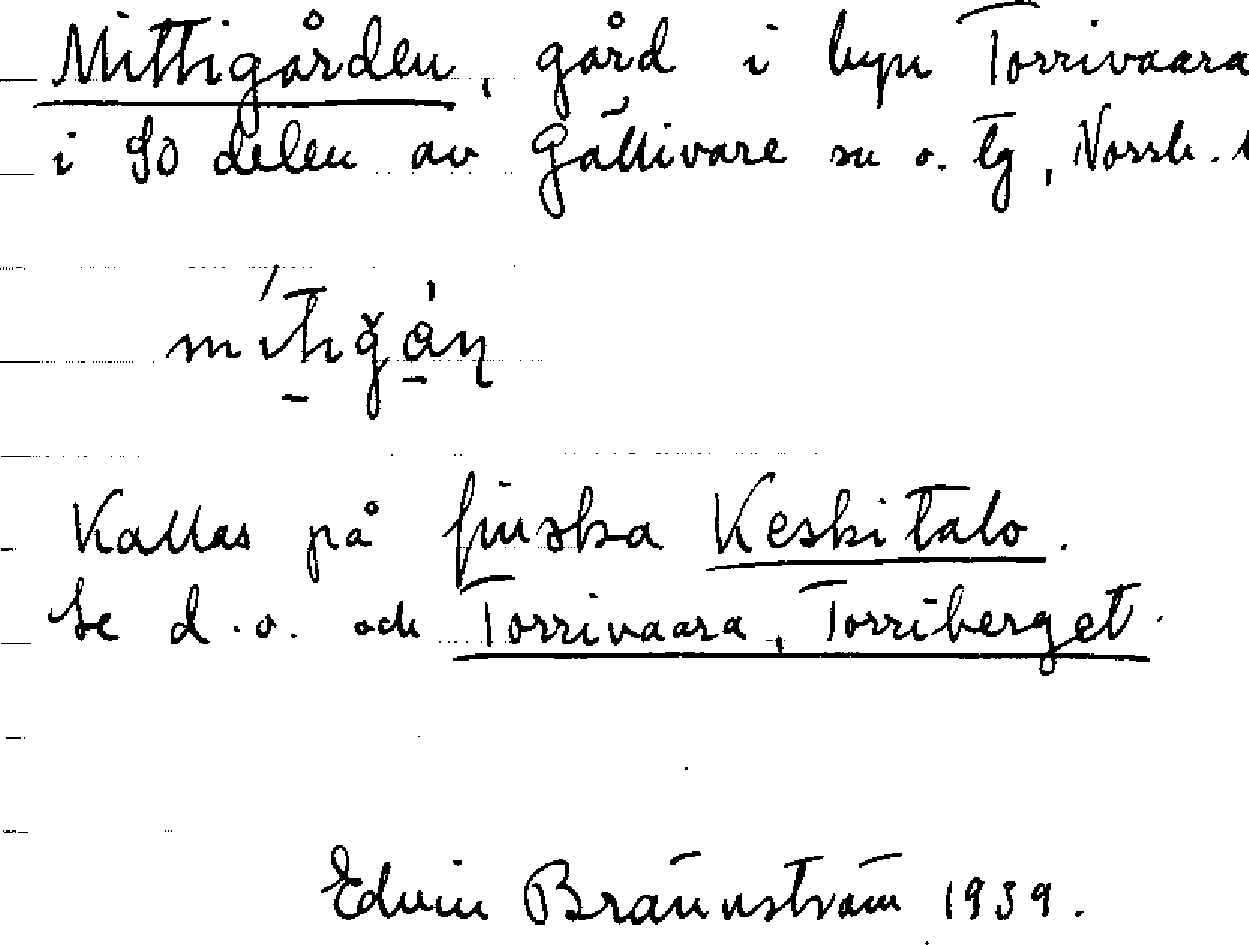 Mittigården, gård i byn Torrivaara
i SO delen av Gällivare sn o. tg, Norrb.
Kallas på finska Keskitalo.
Se d.o. och Torrivaara, Torriberget.
Edvin Brännström 1939.